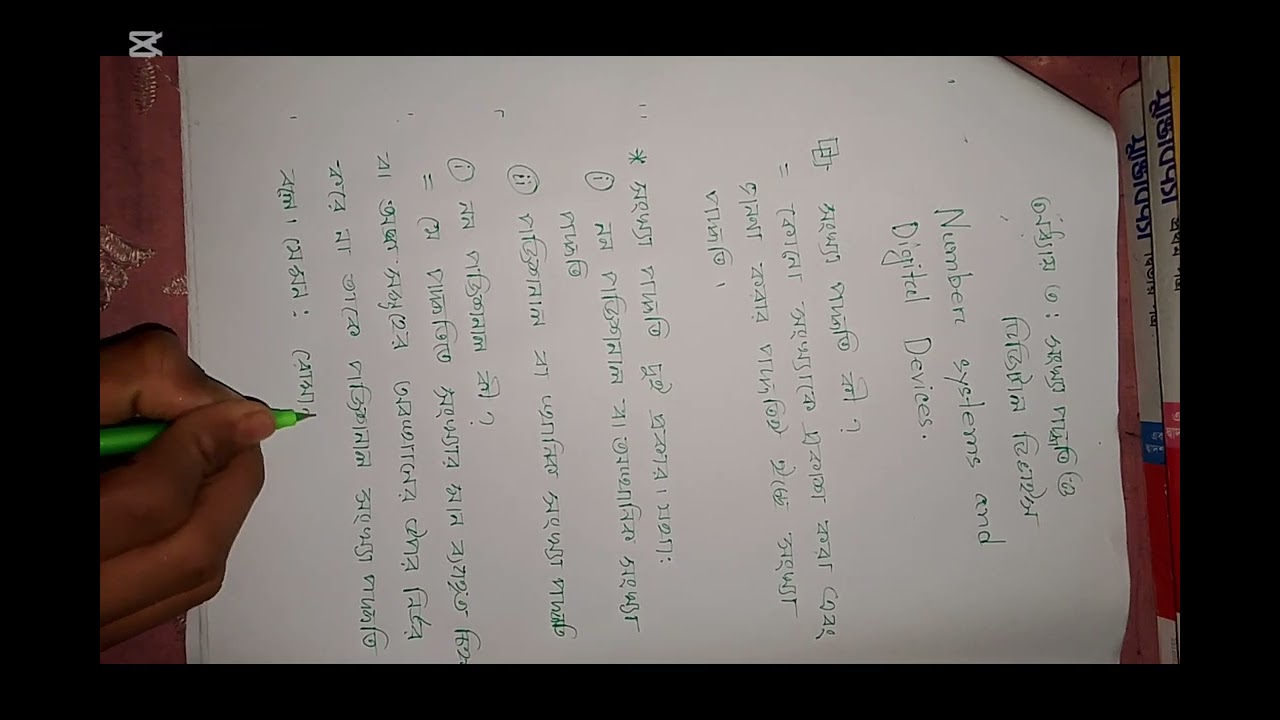 অধ্যায় ৩ : সংখ্যা পদ্ধতি ও
ডিজিটাল ডিভাইস
Number systems and
Digital Devices.
সংখ্যা পদ্ধতি কী ?
= কোনো সংখ্যাকে প্রকাশ করা এবং
গননা করার পদ্ধতিই হচ্ছে সংখ্যা
পদ্ধতি ।
* সংখ্যা পদ্ধতি দুই প্রকার। যথা:
i নন পজিশনাল বা অস্থানিক সংখ্যা
পদ্ধতি
ii পজিশনাল বা স্থানিক সংখ্যা পদ্ধতি
i নন পজিশনাল কী ?
= যে পদ্ধতিতে সংখ্যার মান ব্যবহৃত চিহ্ন
বা অঙ্ক সমূহের অবস্থানের উপর নির্ভর
করে না তাকে পজিশনাল সংখ্যা পদ্ধতি
বলে। যেমন :
যুক্তিবিদ্যা প্রথম পত্র
যুক্তিবিদ্যা দ্বিতীয় পত্র